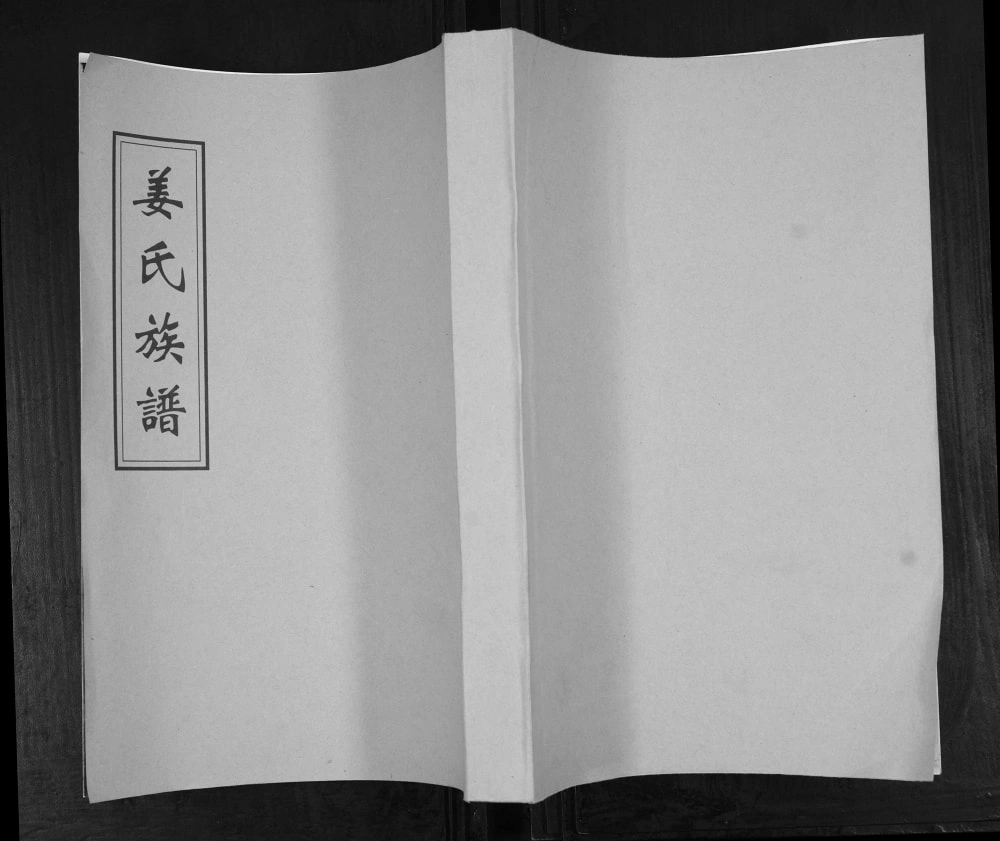 姜氏族譜